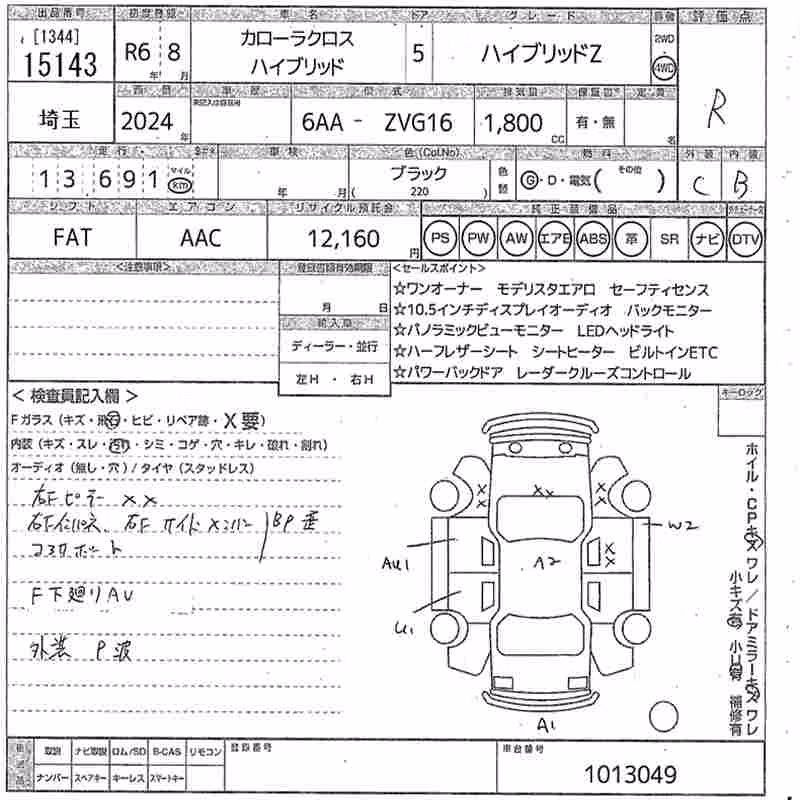 出品番号 初度登録 車名 ドア グレード 駆動 評価点
[1344]
15143 R6年 8月 カローラクロス ハイブリッド 5 ハイブリッドZ 2WD 4WD R
西暦 車歴 型式 排気量 保証書 定員
埼玉 2024年 未記入は自家用 6AA - ZVG16 1,800cc 有・無 名
走行 車検 色(Col.No) 燃料 外装 内装
13,691 マイル km 年 月 ブラック ( 220 ) 色替 G・D・電気( その他 ) C B
シフト エアコン リサイクル預託金 純正装備品
FAT AAC 12,160円 PS PW AW エアB ABS 革 SR ナビ DTV
<注意事項> 登録書類有効期限 <セールスポイント>
月 日
☆ワンオーナー モデリスタエアロ セーフティセンス
☆10.5インチディスプレイオーディオ バックモニター
輸入車
ディーラー・並行
左H ・ 右H
☆パノラミックビューモニター LEDヘッドライト
☆ハーフレザーシート シートヒーター ビルトインETC
☆パワーバックドア レーダークルーズコントロール
< 検査員記入欄 >
キーロック
Fガラス(キズ・飛石・ヒビ・リペア跡・X要)
内装(キズ・スレ・汚れ・シミ・コゲ・穴・キレ・破れ・割れ)
オーディオ(無し・穴)/タイヤ(スタッドレス)
右Fピラー XX
右Fインパネ、右FサイドメンバーBP歪
コアサポート
F下廻りAU
外装 P波
XX
X X
X X
W2
AU1
A2
X X
U1
A1
ホイル・CPキズ ワレ/ドアミラーキズ ワレ
小キズ有 小U有 補修有
取説 ナビ取説 ロム/SD B-CAS リモコン 登録番号 車台番号
ナンバー スペアキー キーレス スマートキー 1013049